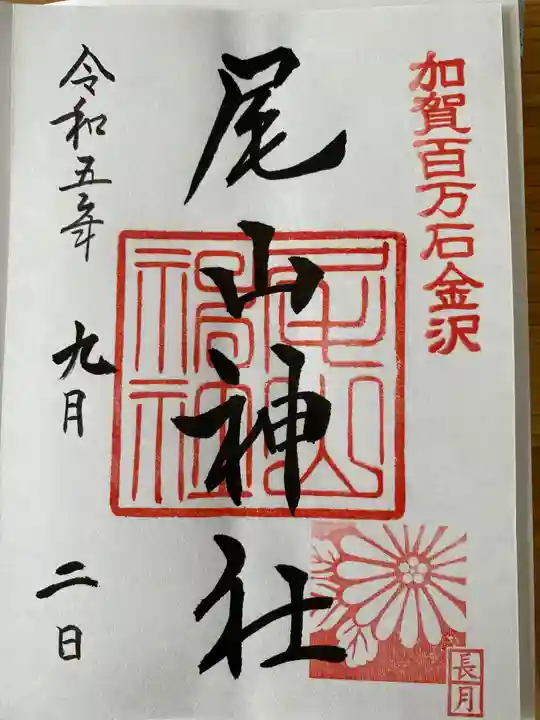 加賀百万石金沢
尾山神社
長月
令和五年 九月 二日